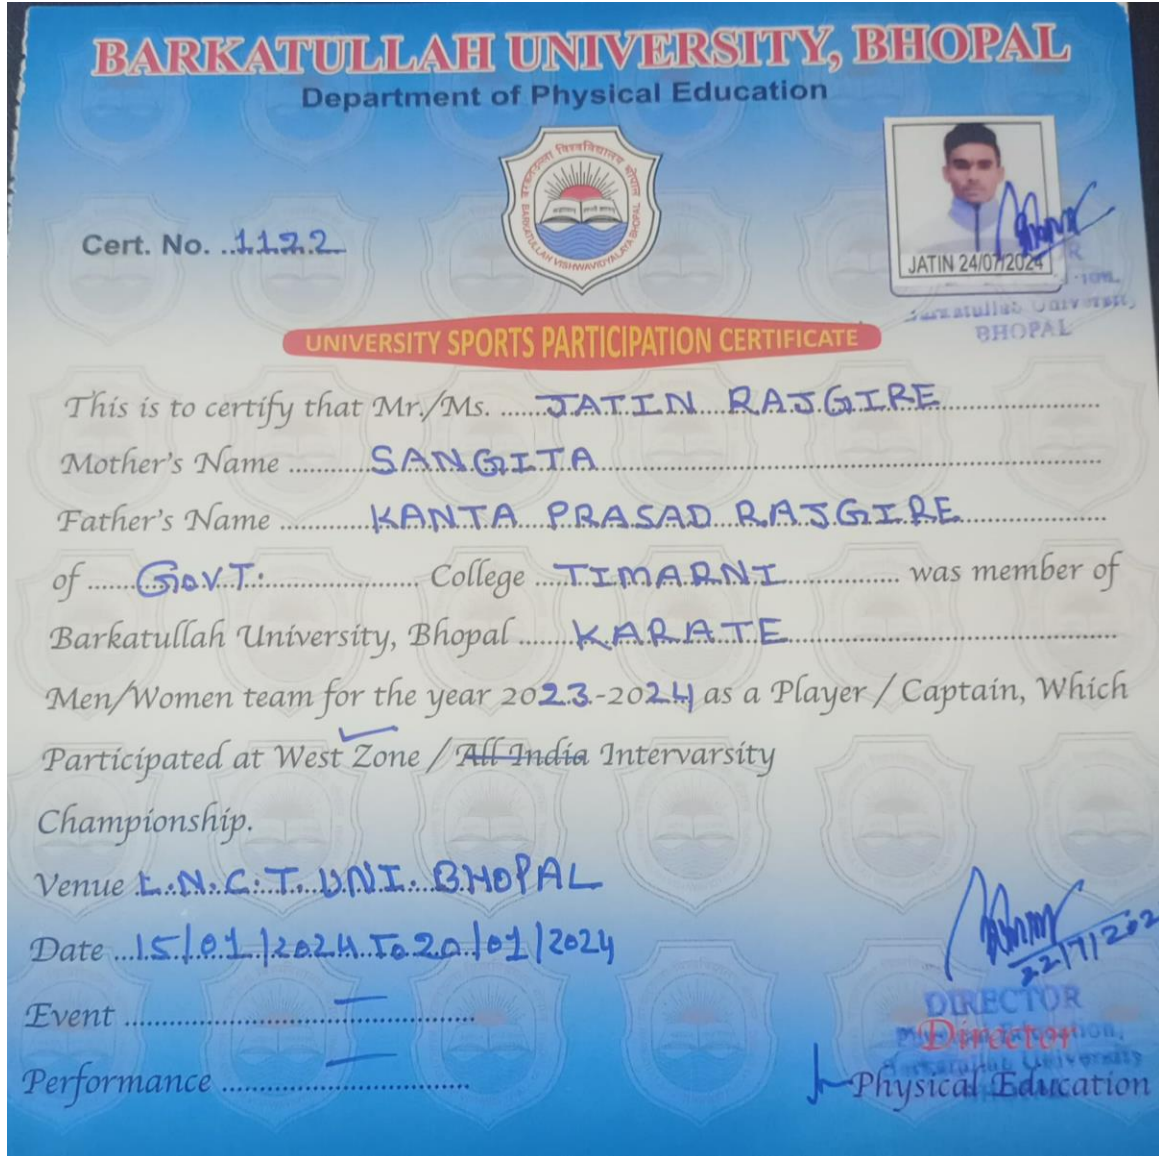 BARKATULLAH UNIVERSITY, BHOPAL
Department of Physical Education
बरकतउल्ला विश्वविद्यालय भोपाल
BARKATULLAH VISHWAVIDYALAYA BHOPAL
Cert. No. ..1122
JATIN 24/07/2024
Barkatullah University,
BHOPAL
UNIVERSITY SPORTS PARTICIPATION CERTIFICATE
This is to certify that Mr./Ms. ......JATIN RAJGIRE......
Mother's Name ......SANGITA......
Father's Name ......KANTA PRASAD RAJGIRE......
of ......GOVT.:...... College ...TIMARNI...... was member of
Barkatullah University, Bhopal ......KARATE......
Men/Women team for the year 2023-2024 as a Player / Captain, Which
Participated at West Zone / All India Intervarsity
Championship.
Venue L.N.C.T. UNI. BHOPAL
Date ...15/01/2024 To 20/01/2024
Event ......—......
Performance ......—......
22/7/202
DIRECTOR
Director
Barkatullah University
Physical Education